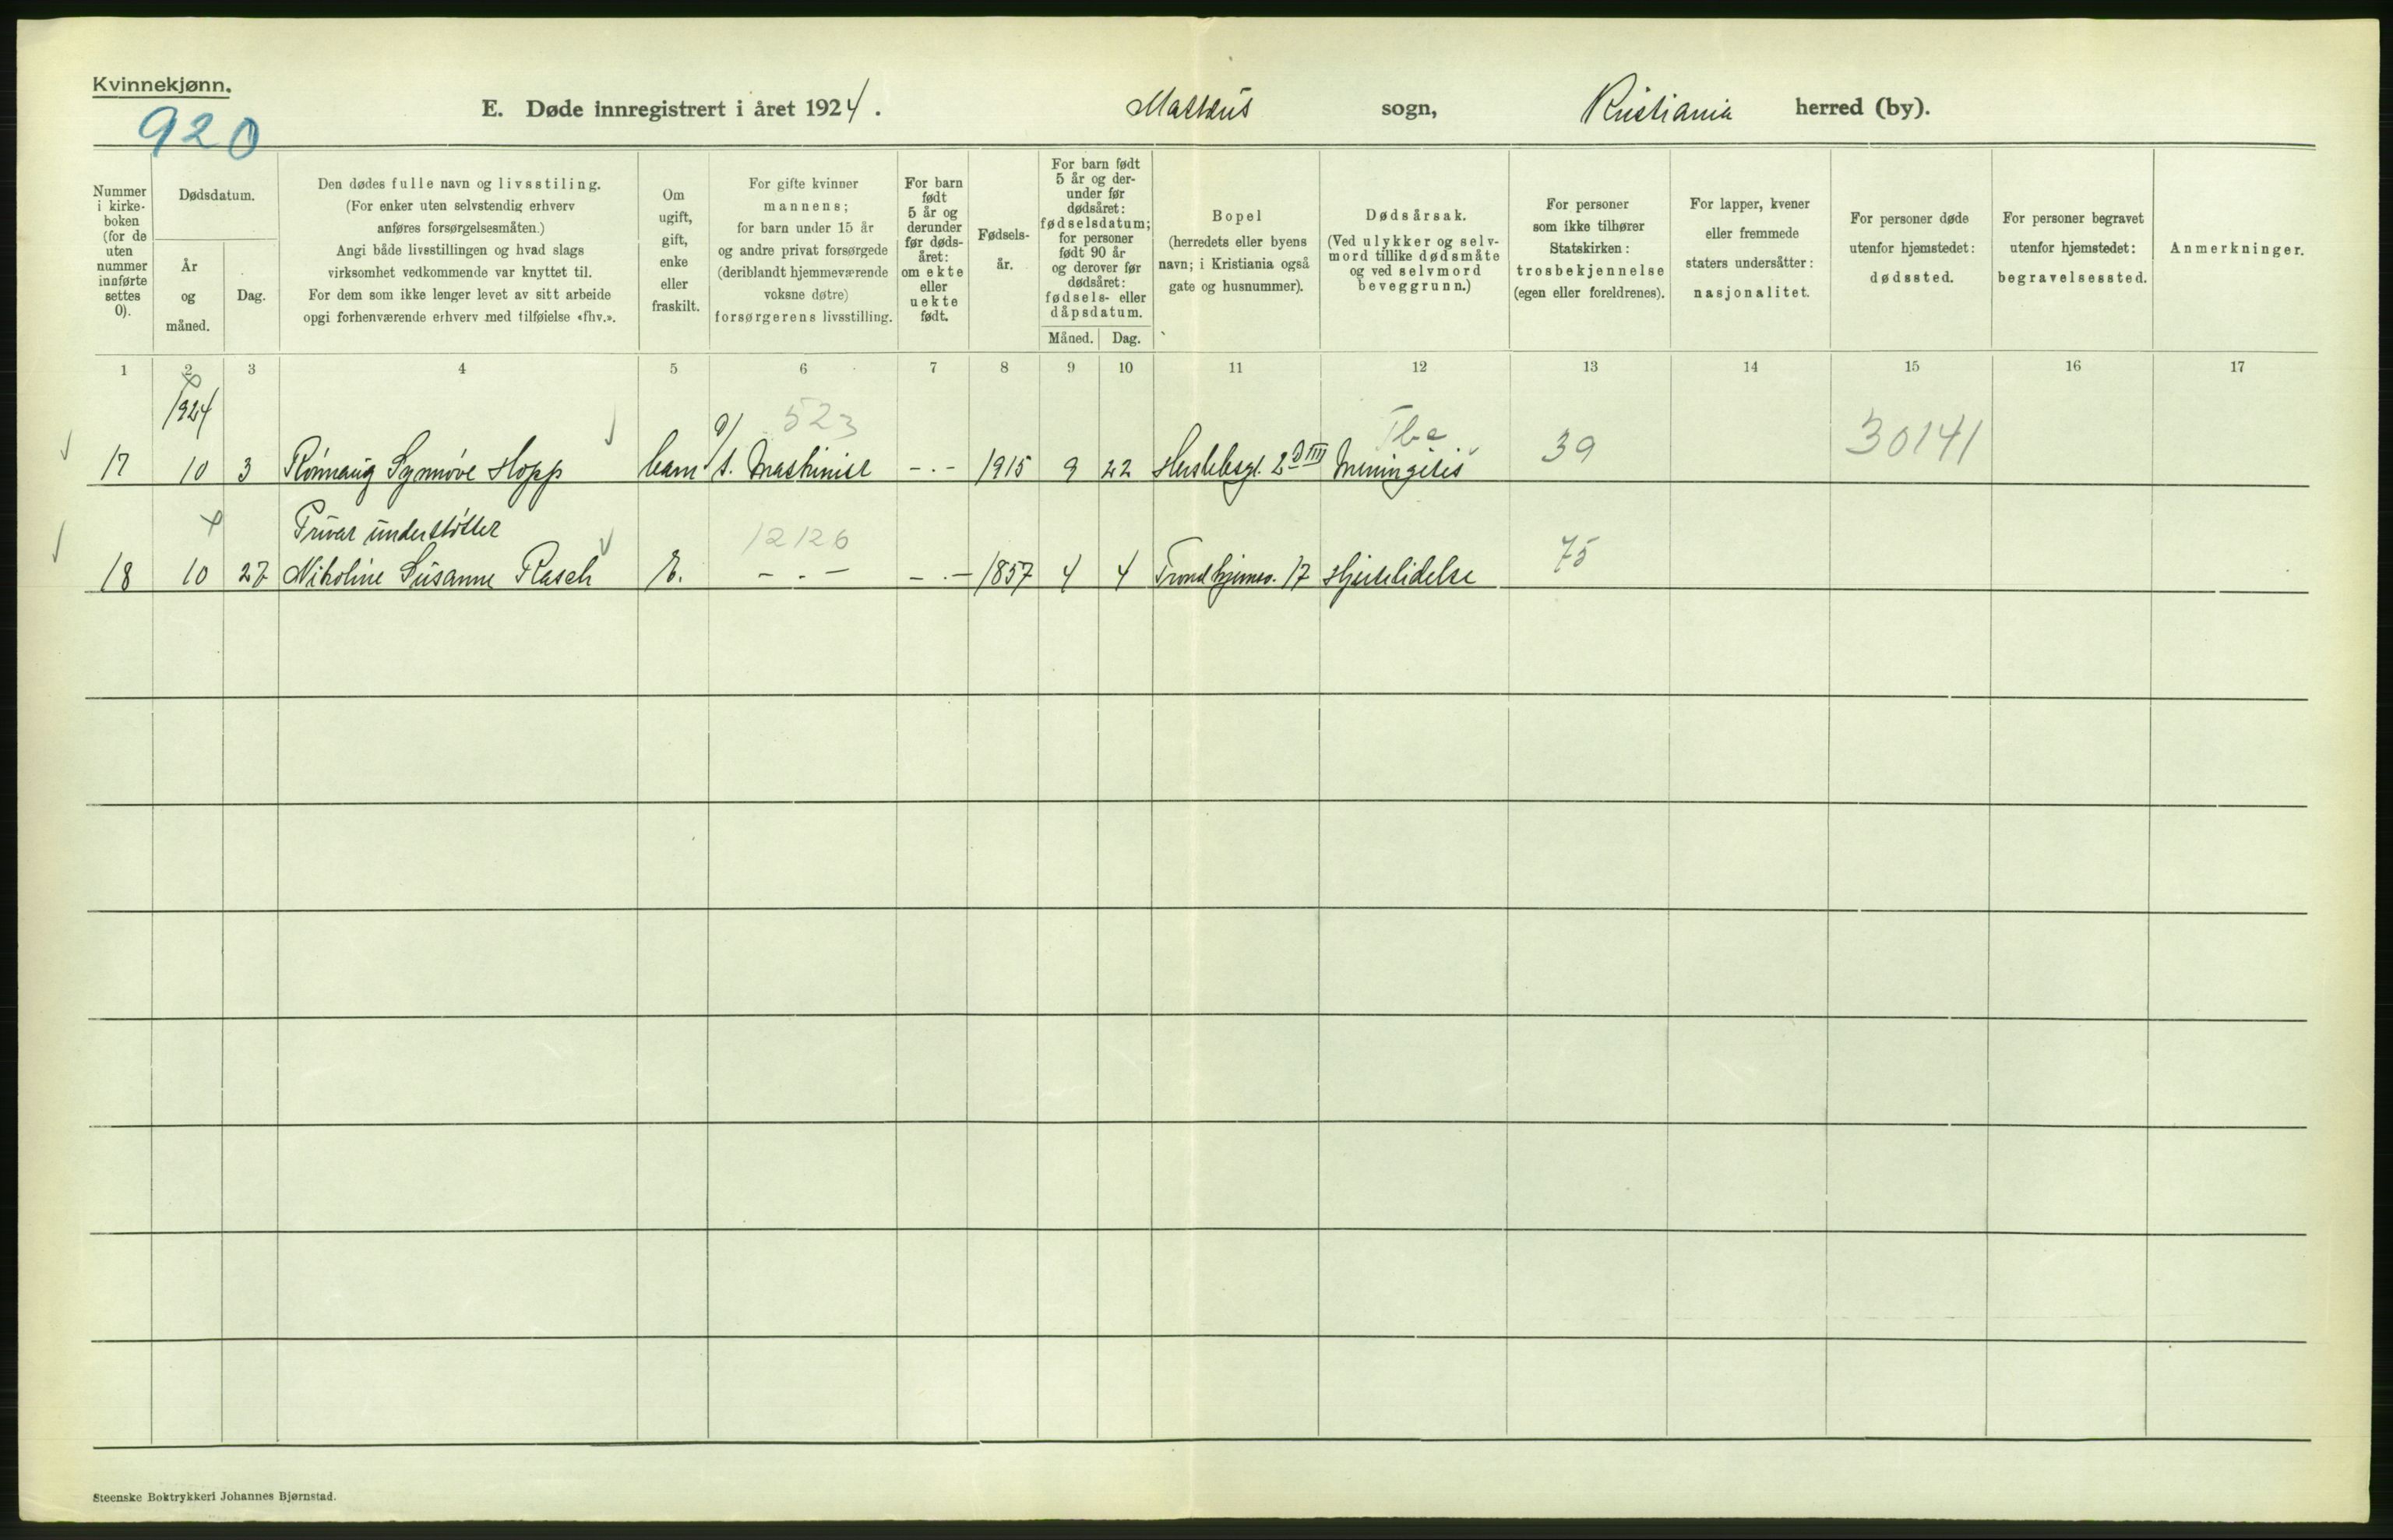 Kvinnekjønn.
920
E. Døde innregistrert i året 1924. Matteus sogn, Kristiania herred (by).
Nummer i kirkeboken (for de uten nummer innførte settes 0).
Dødsdatum.
År og måned.
Dag.
Den dødes fulle navn og livsstiling.
(For enker uten selvstendig erhverv
anføres forsørgelsesmåten.)
Angi både livsstillingen og hvad slags
virksomhet vedkommende var knyttet til.
For dem som ikke lenger levet av sitt arbeide
opgi forhenværende erhverv med tilføielse «fhv.».
Om ugift, gift, enke eller fraskilt.
For gifte kvinner
mannens;
for barn under 15 år
og andre privat forsørgede
(deriblandt hjemmeværende
voksne døtre)
forsørgerens livsstilling.
For barn født 5 år og derunder før dødsåret: om ekte eller uekte født.
Fødselsår.
For barn født
5 år og derunder før
dødsåret:
fødselsdatum;
for personer
født 90 år
og derover før
dødsåret:
fødsels- eller
dåpsdatum.
Måned. Dag.
Bopel
(herredets eller byens
navn; i Kristiania også
gate og husnummer).
Dødsårsak.
(Ved ulykker og selvmord tillike dødsmåte
og ved selvmord
beveggrunn.)
For personer
som ikke tilhører
Statskirken:
trosbekjennelse
(egen eller foreldrenes).
For lapper, kvener
eller fremmede
staters undersåtter:
nasjonalitet.
For personer døde
utenfor hjemstedet:
dødssted.
For personer begravet
utenfor hjemstedet:
begravelsessted.
Anmerkninger.
1 2 3 4 5 6 7 8 9 10 11 12 13 14 15 16 17
1924
523
Tbc
17 10 3 Rønnaug Synnøve Hopp barn d/ s. Maskinist -.- 1915 9 22 Herslebsgt. 2 D III Meningitis 39 30141
Privat understøttet
12126
18 10 27 Nikoline Susanne Rasch E. -.- -.- 1857 4 4 Trondhjemsv. 17 Hjertelidelse 75
Steenske Boktrykkeri Johannes Bjørnstad.